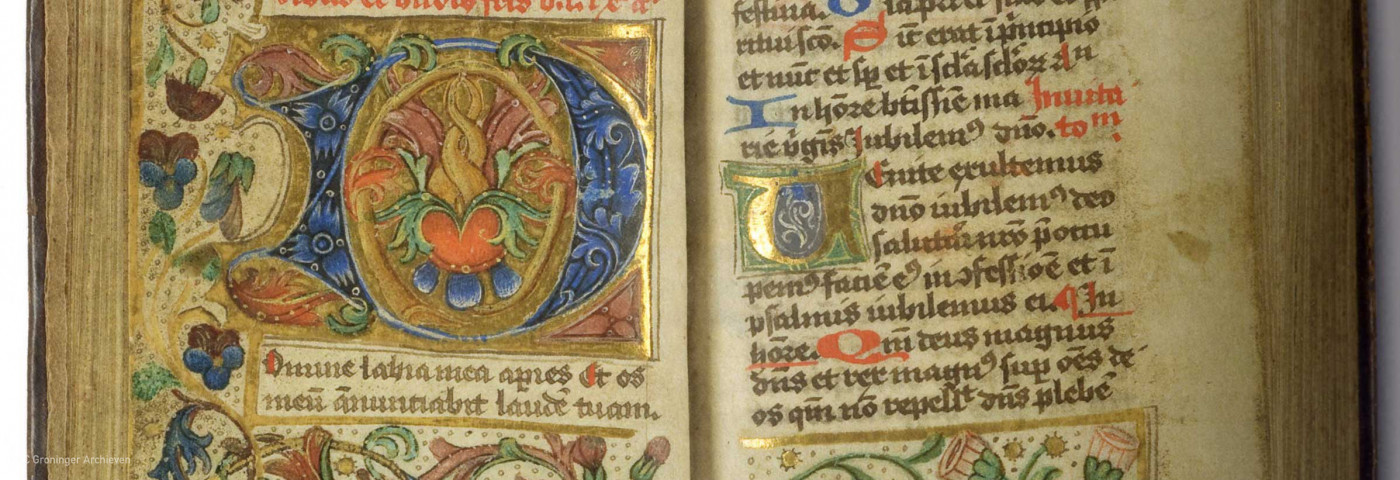 Domine labia mea apries Et os
meū ānunciabit laudē tuam.
festina. S
ritui sco. S ic̄ erat ī pncipio
et nūc et sp et ī scl̄a sclōrz An
In hōre btissīe ma Inuita
rie v̄gīs Iubilemꝰ dn̄o. toᵐ:
Uenite exultemus
dn̄o iubilemꝰ deo
salutari nr̄o p̄occu
pemꝰ faciē eꝰ in ꝯfessiōe et ī
psalmis iubilemus ei. In
hōre. Qm̄ deus magnus
dn̄s et rex magnꝰ sup oēs de
os qm̄ nō repell&#x27;t dn̄s plebē
© Groninger Archieven